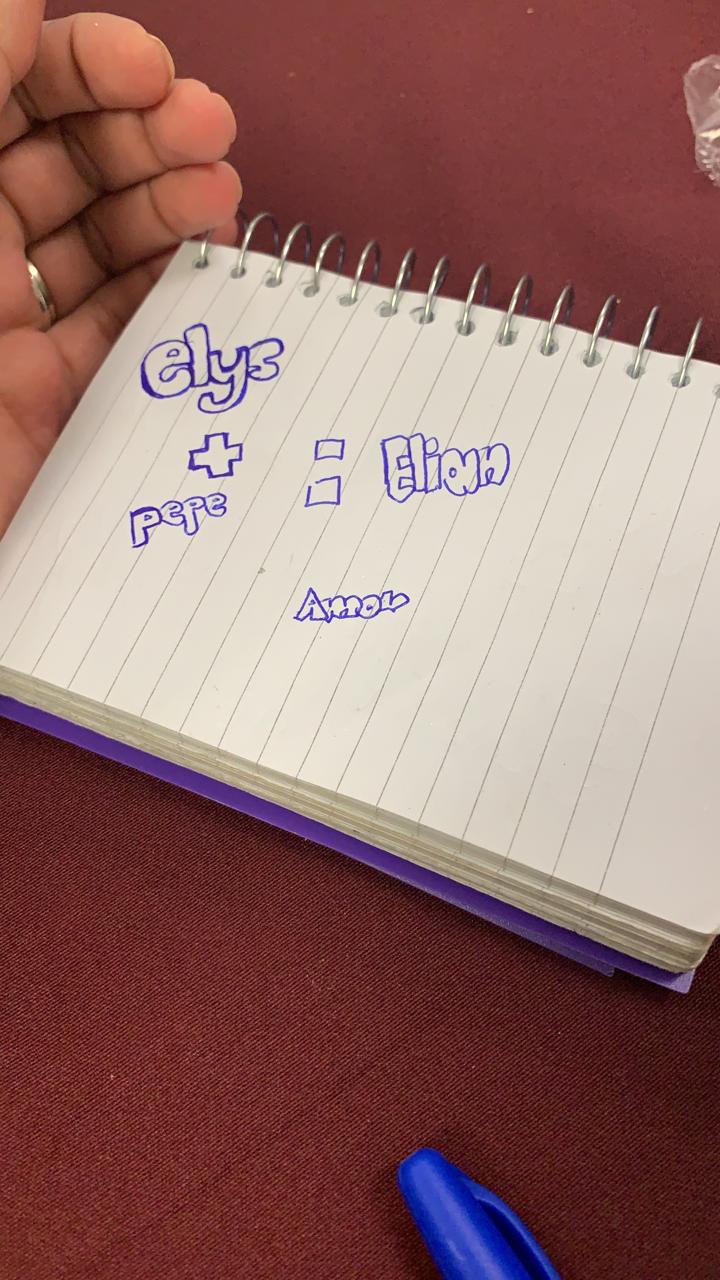 elys
+
pepe
= Elian
Amor